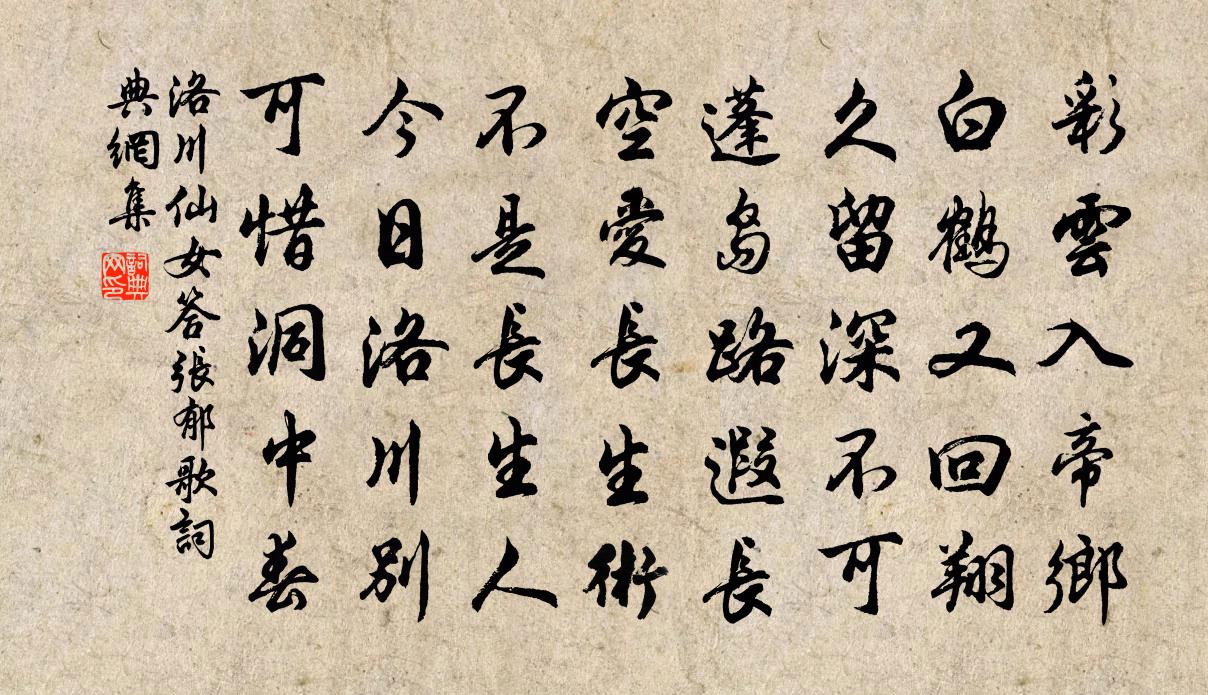 彩雲入帝鄉
白鶴又回翔
久留深不可
蓬島路遐長
空愛長生術
不是長生人
今日洛川別
可惜洞中春
洛川仙女答張郁歌詞
典網集
詞典网印